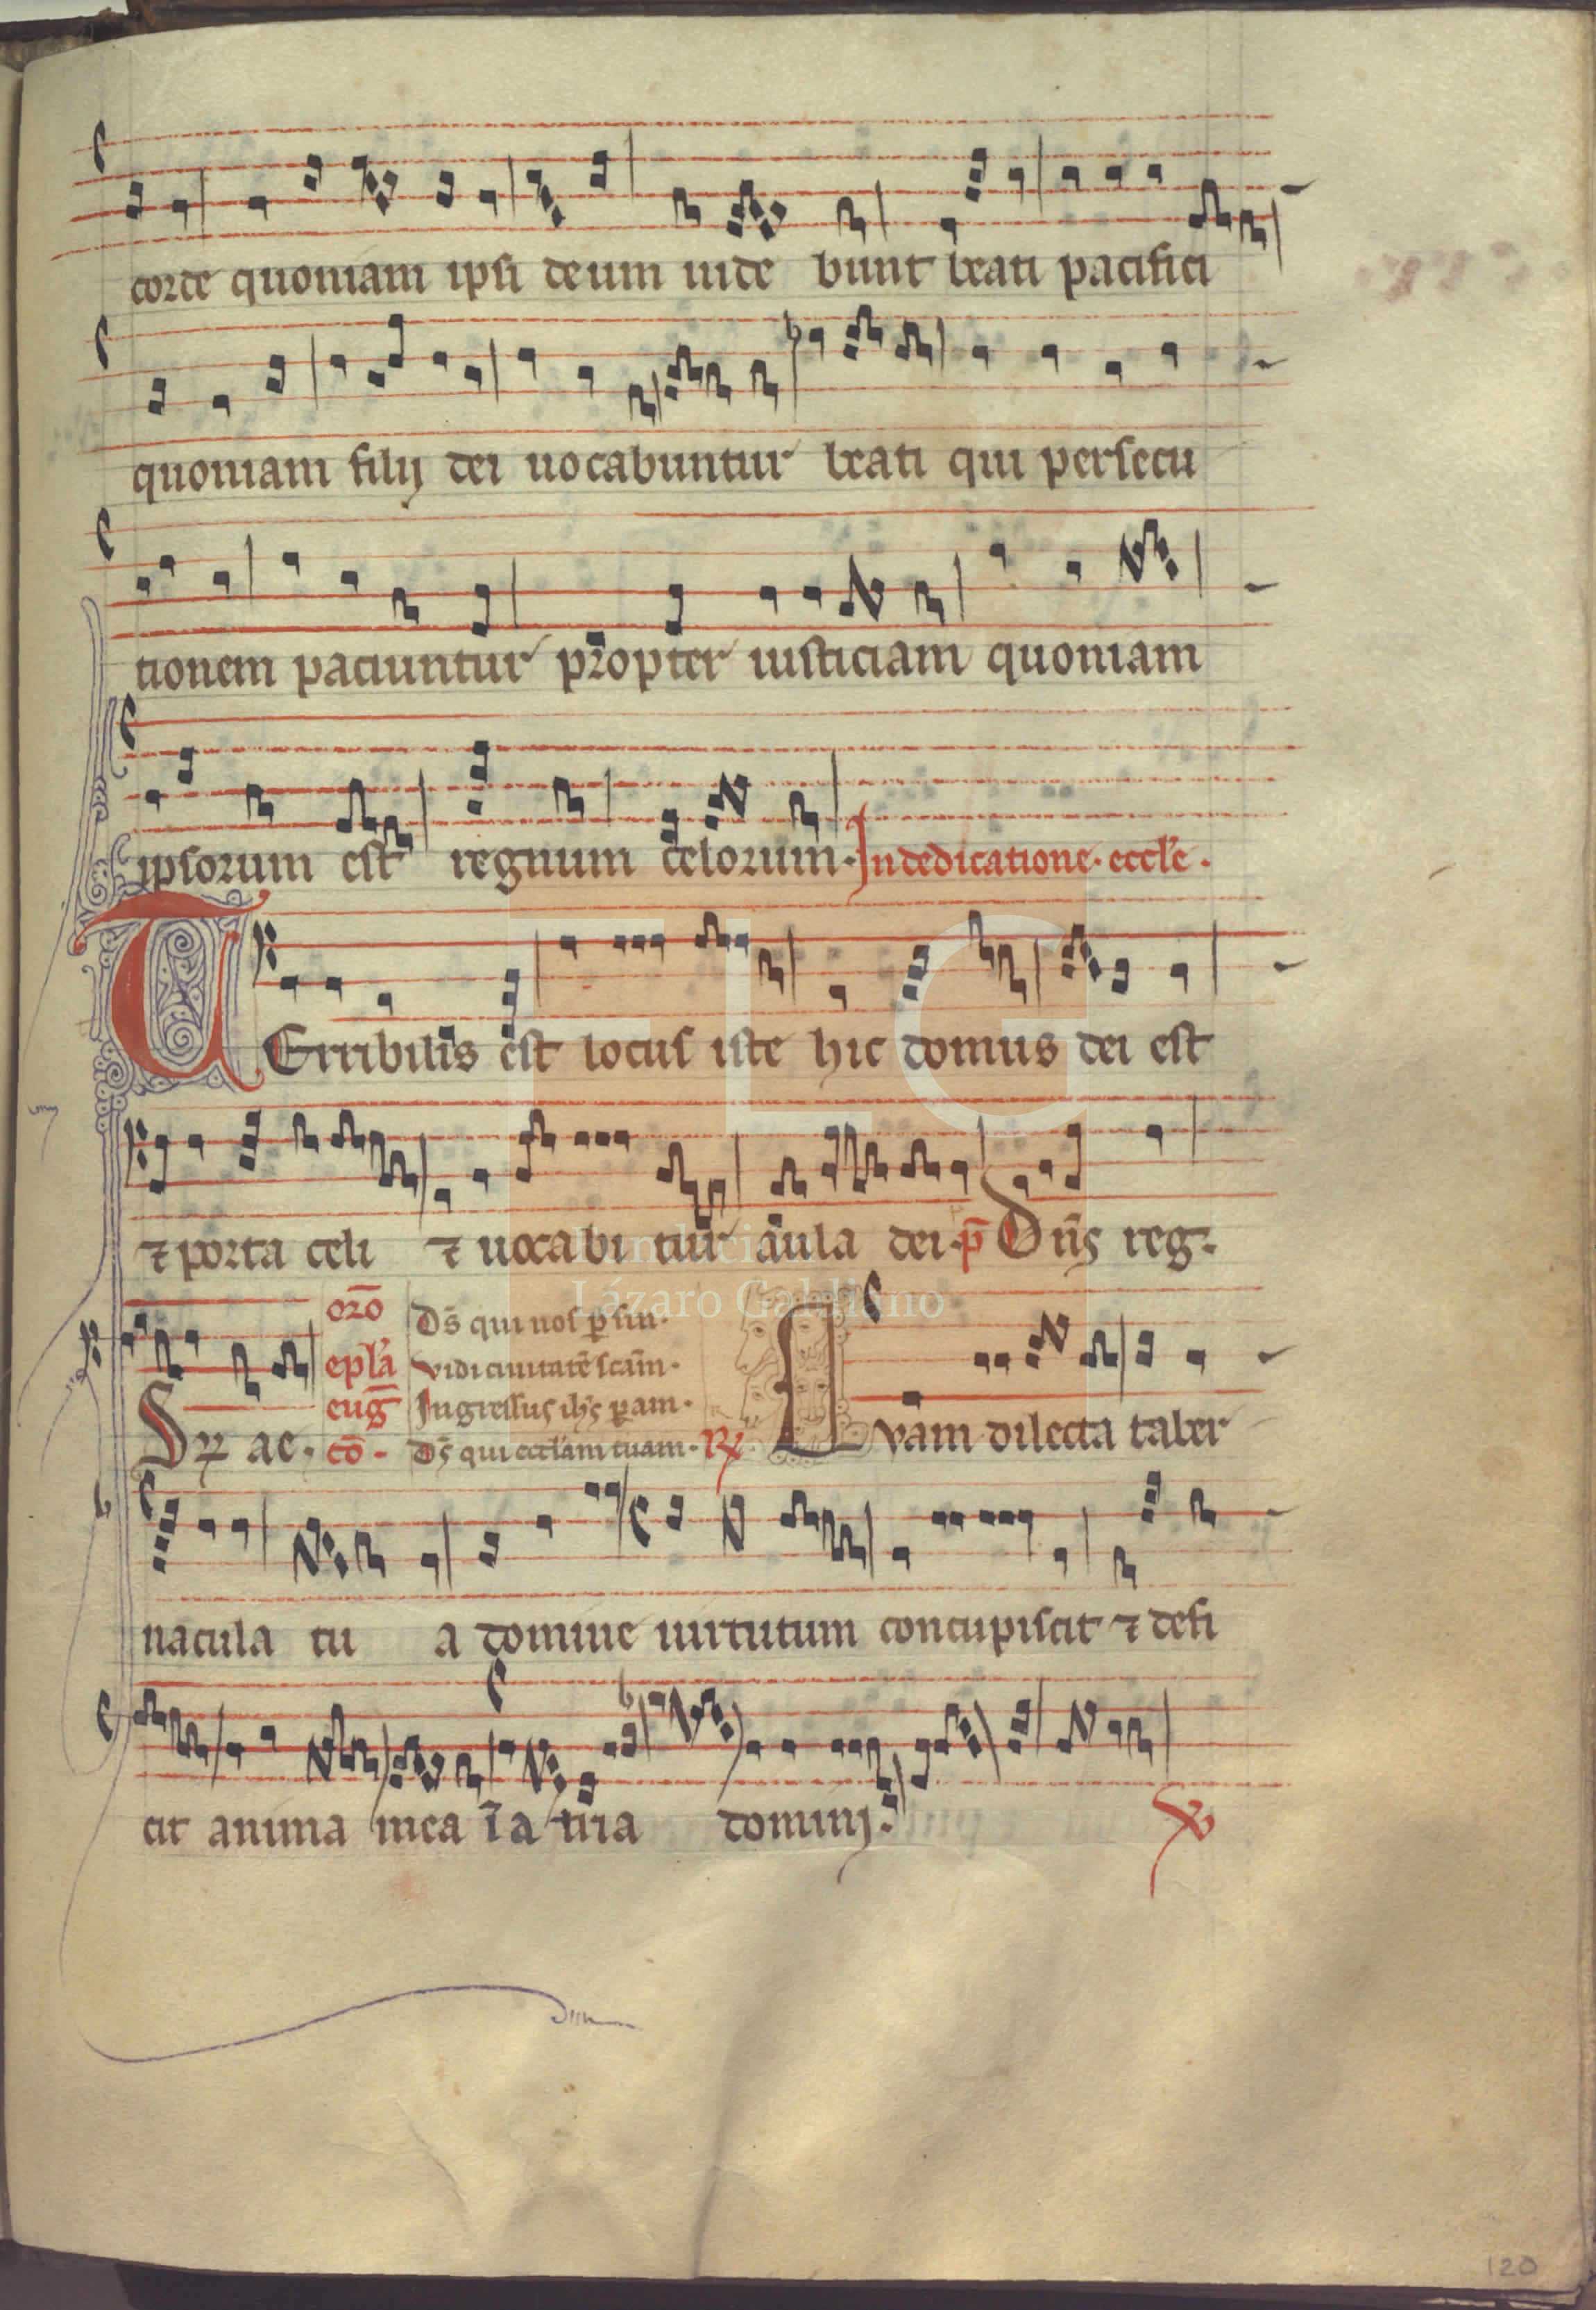 corde quoniam ipsi deum uide bunt beati pacifici
quoniam filij dei uocabuntur beati qui persecu
tionem paciuntur propter iusticiam quoniam
ipsorum est regnum celorum. In dedicatione. eccl'e.
TErribilis est locus iste hic domus dei est
⁊ porta celi ⁊ uocabi tur aula dei. p̄ Dn̄s reg.
Eup ae.
orō Ds̄ qui nos ꝑ sin.
epl'a Vidi ciuitatē scām.
eug̅ Ingressus ih̅s ꝑam.
cō. Ds̄ qui eccl'am tuam. ℟
QVam dilecta taber
nacula tu a domine uirtutum concupiscit ⁊ defi
cit anima mea ī a tria domini.
℣
Lázaro Galdiano
FLG
120